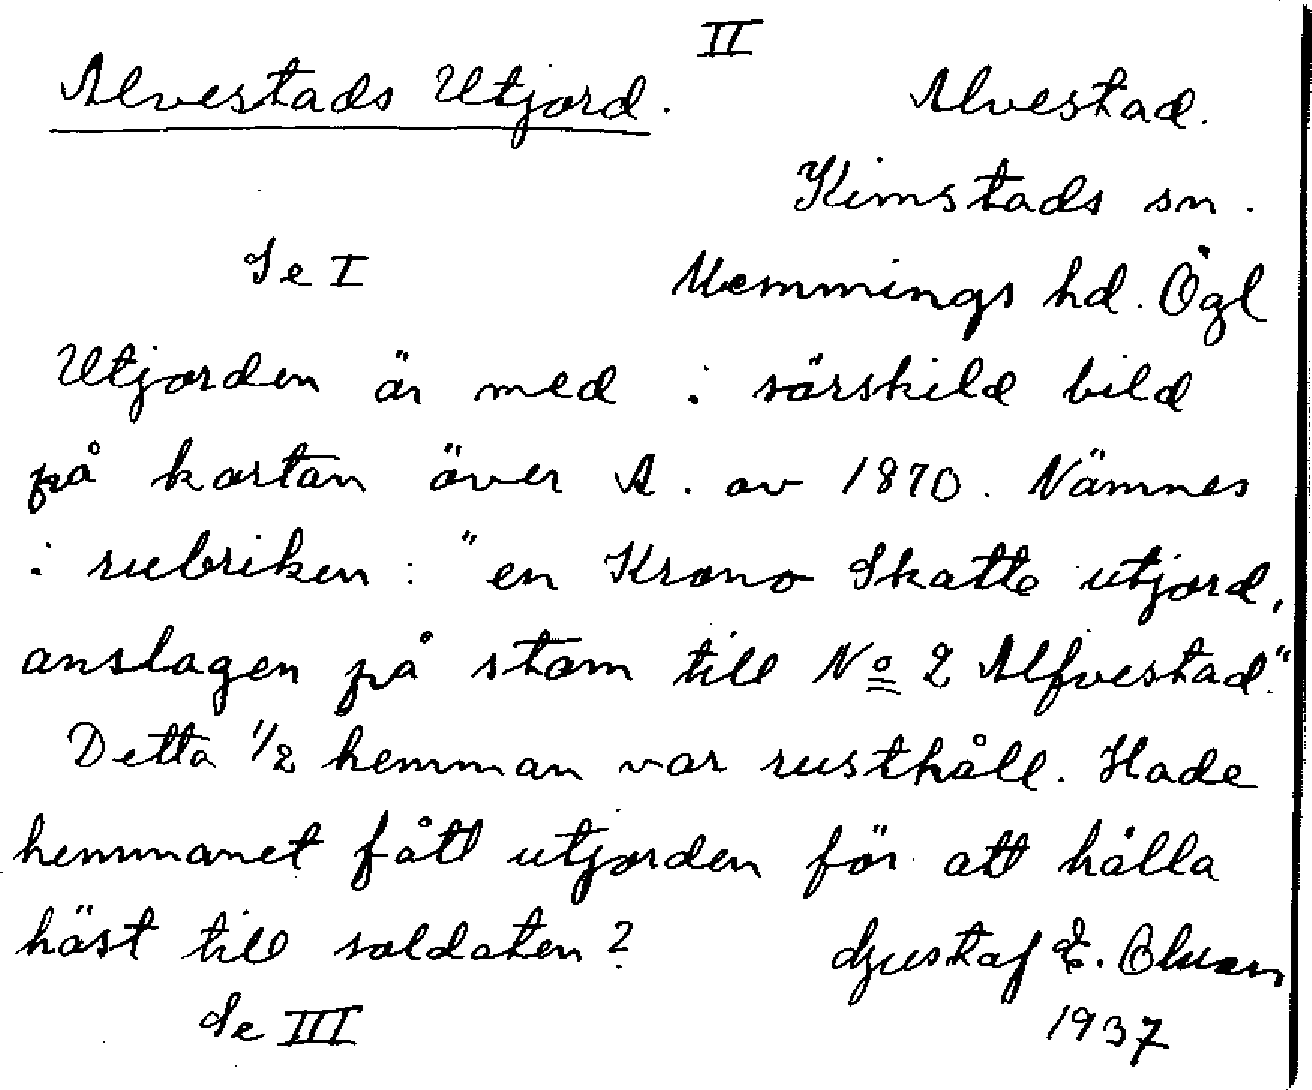 II
Alvestads Utjord. Alvestad.
Kimstads sn.
Se I Memmings hd. Ögl
Utjorden är med i särskild bild
på kartan över A. av 1870. Nämnes
i rubriken: "en Krono Skatte utjord,
anslagen på stom till No 2 Alfvestad".
Detta 1/2 hemman var rusthåll. Hade
hemmanet fått utjorden för att hålla
häst till soldaten? Gustaf E. Olsson
Se III 1937